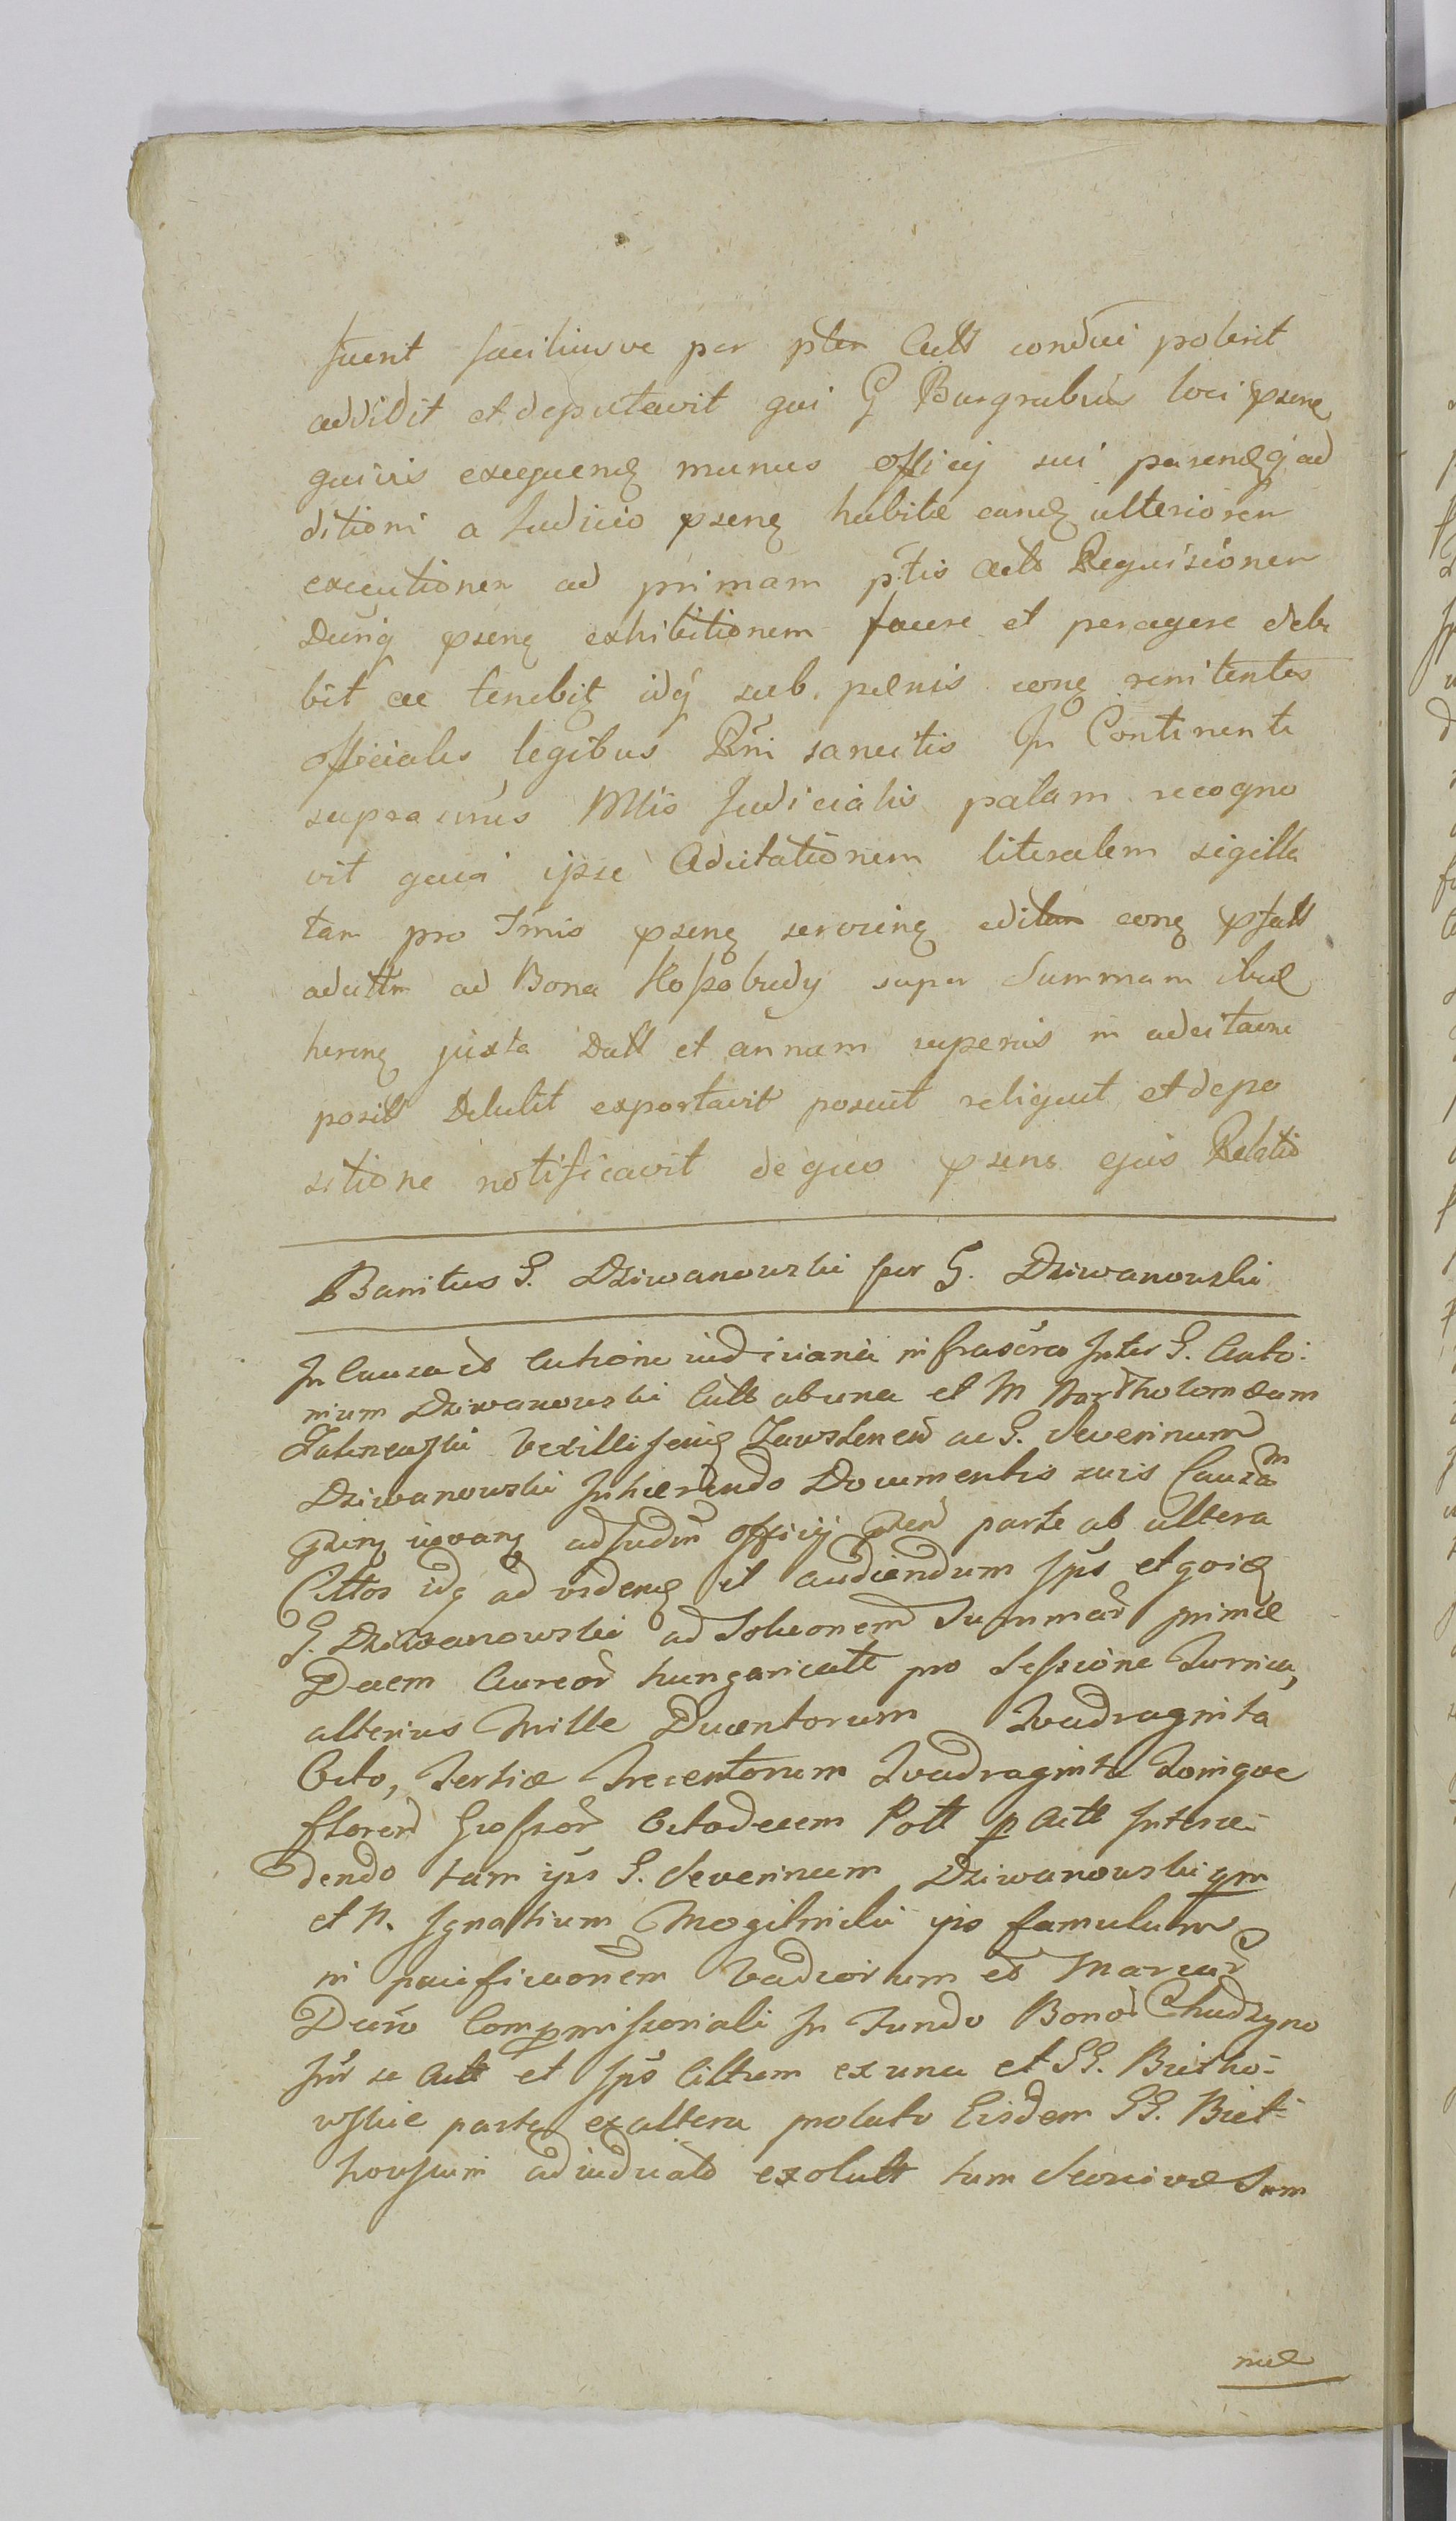 fuerit faciliusve per ptem Actt condui poterit
addidit et deputavit qui G Burgrabius loci psenę
quivis exequendę munus officij sui parendęq́ ad
ditioni a Judicio psenę habitæ eandę ulteriorem
executionem ad primam ptis Actt Requisitionem
Dunię psenę exhibitionem facere et peragere debe
bit ac tenebit idq́ sub pænis conę renitentes
officiales legibus Rńi sancitis In Continenti
supra Mlis Judicialis palam recogno
vit quia ipse Adcitationem literalem sigilla
tam pro Tmis psenę servienę editam conę
adcittm ad Bona Kossobudy super Summam ibidę
herenę juxta Datt et annum superius in adcitaone
positt Detulit exportavit posuit reliquit et depo
sitione notificavit de quo psens ejus Relatio
Banitus G. Dziwanowski per G. Dziwanowski
In Causa et Actione iudiciaria infrascra Inter G. Anto:
nium Dziwanowski Actt ab una et M Bartholomæum
Zakrzewski Vexilliferę Zawskrzen ac G. Severinum
Dziwanowski Inhærendo Documentis suis Causam
adJudm Officij psen parte ab altera
Cittos idq ad videndę et audiendum Ips et goię
G. Dziwanowski ad Solucionem Summar primæ
Decem Aureor hungaricatt pro Sessione Turrica,
alterius Mille Ducentorum Quadraginta
Octo, Tertiæ Trecentorum Quadraginta Quinque
floren Grossor Octodecem Pott p Actt Interce-
dendo tam ips G. Severinum Dziwanowski qm
et N. Ignatium Mogilnicki ips famulum
in pacificaonem Vadiorum et Marcar
Decro Compromissoriali In Fundo Bonor Chudzyno
Intr se Actt et Ips Cittum ex una et GG. Bietko-
wskie partes ex altera prolato Eisdem GG. Biet-
kowskim adiudicato exolutt tum Secivæ Sum
mæ